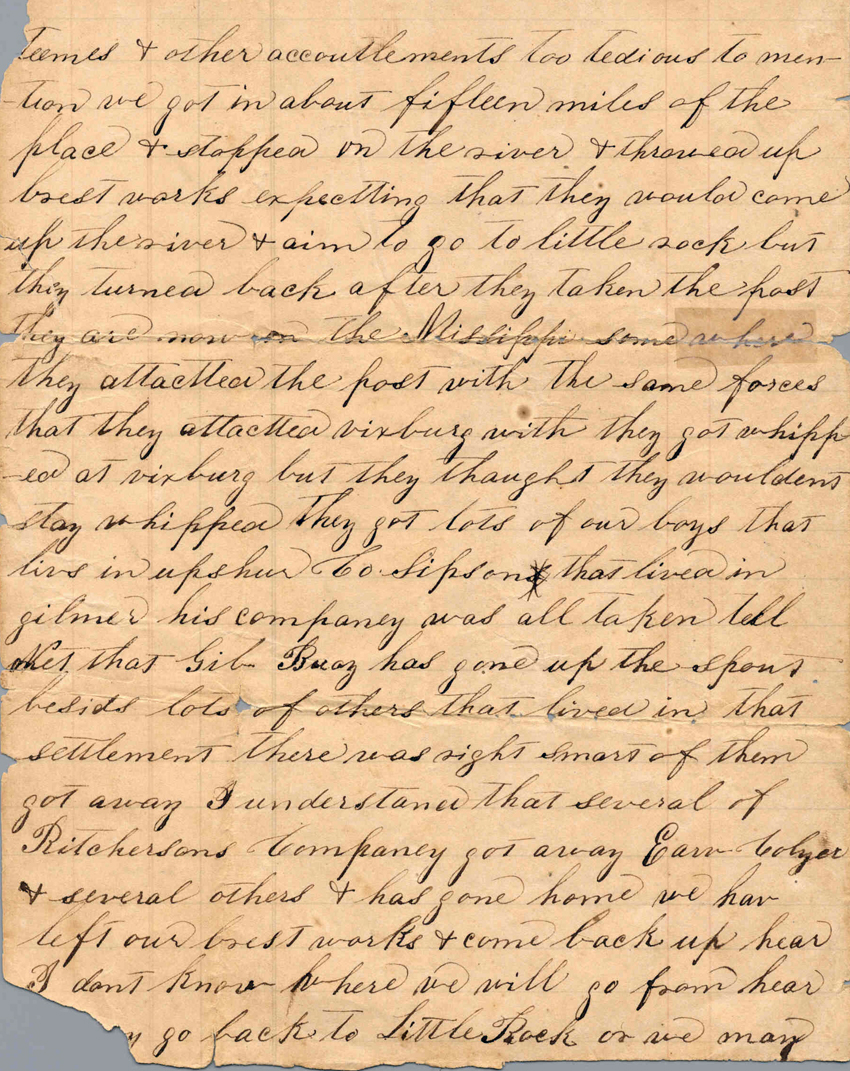 teemes & other accoutlements too tedious to men-
-tion we got in about fifteen miles of the
place & stopped on the river & throwed up
brest works expectting that they would come
up the river & aim to go to little rock but
they turned back after they taken the post
they are now on the Missippi some where
they attactted the post with the same forces
that they attactted vixburg with they got whipp
-ed at vixburg but they thought they wouldent
stay whipped they got lots of our boys that
livs in upshur Co. Sipson that lived in
gilmer his companey was all taken tell
Net that Gib Buaz has gone up the spout
besids lots of others that lived in that
settlement there was right smart of them
got away I understand that several of
Ritchersons Companey got away Earv Colyer
& several others & has gone home we hav
left our brest works & come back up hear
I dont know where we will go from hear
go back to Little Rock or we may